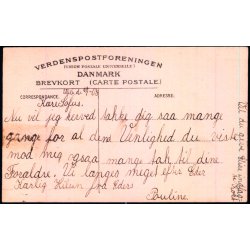 VERDENSPOSTFORENINGEN
(UNION POSTALE UNIVERSELLE)
DANMARK
BREVKORT (CARTE POSTALE)
CORRESPONDANCE. ADRESSE.
Kære
Nu vil jeg herved takke dig saa mange
gange for al den Venlighed du viste
mod mig ogsaa mange tak til dine
Forældre. Vi længes meget efter Eder
Kærlig Hilsen fra
Pauline.